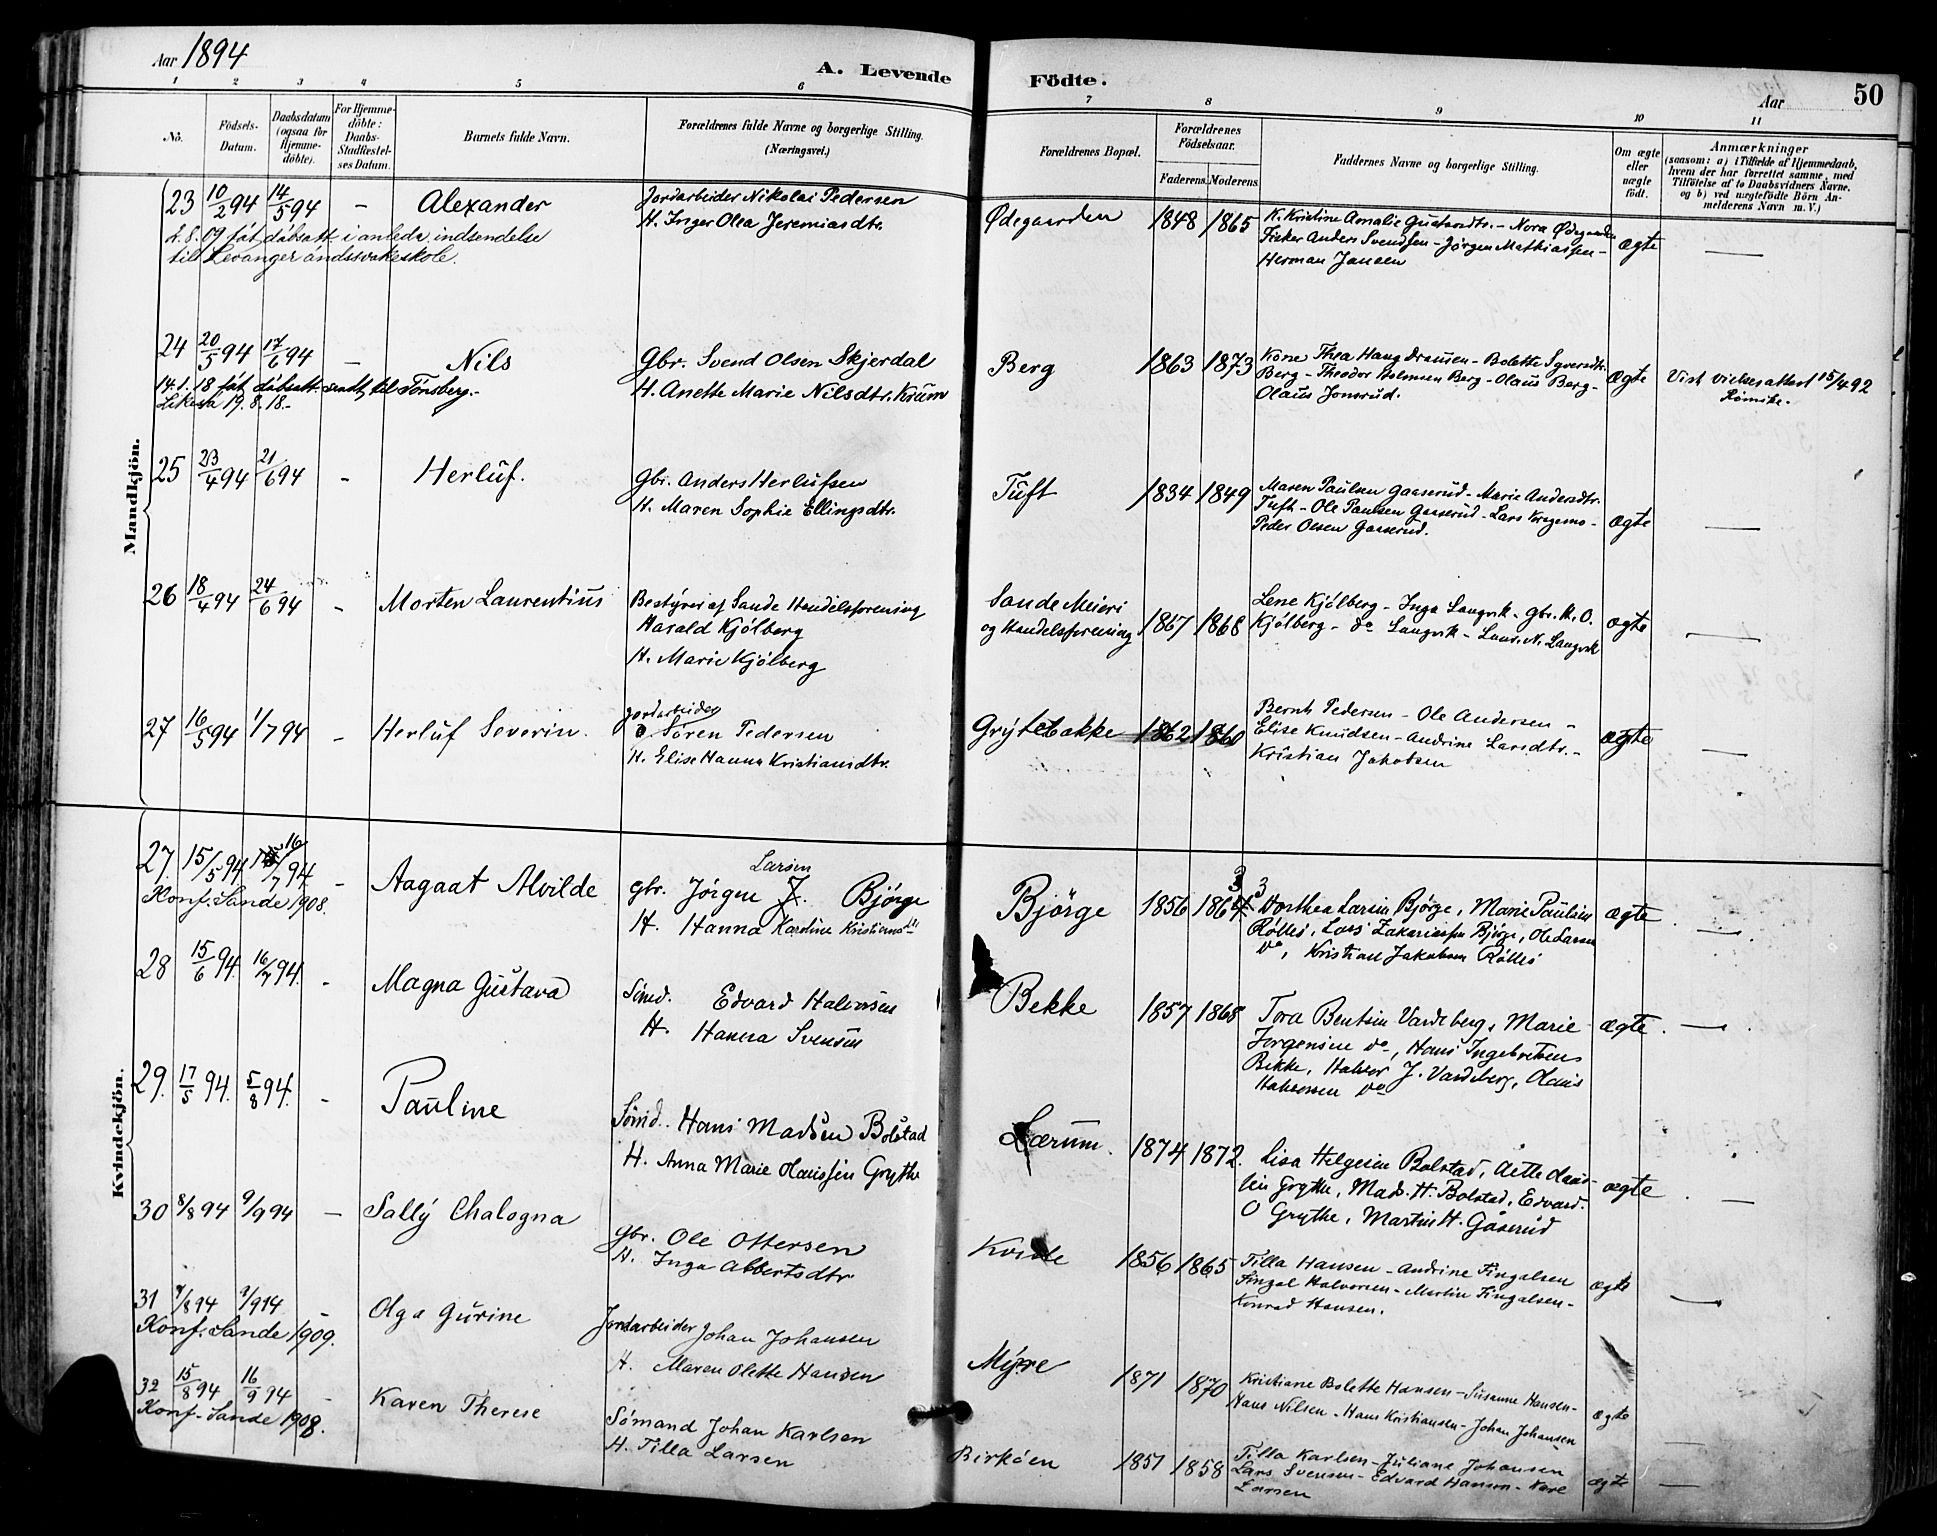 Aar 1894
A. Levende
Födte.
Aar
50
1 2 3 4 5 6 7 8 9 10 11
No.
Födsels-
Datum.
Daabsdatum
(ogsaa for
Hjemme-
döbte).
For Hjemme-
döbte:
Daabs-
Stadfæstel-
ses Datum.
Barnets fulde Navn.
Forældrenes fulde Navne og borgerlige Stilling.
(Næringsvei.)
Forældrenes Bopæl.
Forældrenes
Födselsaar.
Faderens. Moderens.
Faddernes Navne og borgerlige Stilling.
Om ægte
eller
uægte
födt.
Anmærkninger
(saasom: a) i Tilfælde af Hjemmedaab,
hvem der har forrettet samme, med
Tilföielse af to Daabsvidners Navne,
og b) ved uægtefödte Börn An-
melderens Navn m. V.)
Mandkjön.
23 10/2 94 14/5 94 – Alexander
Jordarbeider Nikolai Pedersen
H. Inger Olea Jeremiasdtr.
Ødegaarden 1848 1865
K. Kristine Amalie Gustavsdtr. – Nora Ødegaarden
Anders Svendsen – Jörgen Mathiassen –
Herman Jansen
ægte —
2.8.09 fåt dåbsatt. i anledn. indsendelse
til Levanger åndssvakeskole.
24 20/5 94 17/6 94 – Nils
Gbr. Svend Olsen Skjerdal
H. Anette Marie Nilsdtr. Krum
Berg 1863 1873
Kone Thea Haug Drammen – Bolette Syversdtr.
Berg – Theodor Holmsen Berg – Olaus Berg –
Olaus Jonsrud.
ægte
Vist vielsesattest 15/4 92
14.1.18 fåt dåbsatt. sendt til Tönsberg.–
Likesa 19.8.18.–
25 23/4 94 21/6 94 – Herluf.
Gbr. Anders Herlufsen
H. Maren Sophie Ellingsdtr.
Tuft 1834 1849
Maren Paulsen Gaaserud – Marie Andersdtr.
Tuft – Ole Paulsen Gaaserud – Lars
Peder Olsen Gaaserud.
ægte —
26 18/4 94 24/6 94 – Morten Laurentius
Bestyrer af Sande Handelsforening
Harald Kjölberg
H. Marie Kjölberg
Sande Meieri
og Handelsforening 1867 1868
Lene Kjölberg – Inga Langvik – Gbr. M. O.
Kjölberg – do Langvik – Laur. N. Langvik
ægte —
27 16/5 94 1/7 94 – Herluf Severin.
Jordarbeider
Sören Pedersen
H. Elise Hanna Kristiansdtr.
Grytebakke 1862 1860
Bernh. Pedersen – Ole Andersen –
Elise Knudsen – Andrine Larsdtr. –
Kristian Jakobsen
ægte —
Kvindekjön.
27. 15/5 94 16/7 94. – Aagaat Alvilde
Larsen
gbr. Jörgen J. Björge
H. Hanna Karoline Kristiansdtr
Björge 1856 1864 3
Dorthea Larsen Björge, Marie Paulsen
Lars Zakariassen Björge, Ole Larsen
do, Kristian Jakobsen
ægte —
Konf. Sande 1908.
28 15/6 94. 16/7 94. – Magna Gustava
Sömd. Edvard Halvorsen
H. Hanna Svensen
Bekke 1857 1868
Tora Bentsen Vardeberg, Marie
Jörgensen do, Hans Ingebretsen
Bekke, Halvor J. Vardeberg, Hans
Halvorsen do
ægte. —
29. 17/5 94. 5/8 94. – Pauline
Sömd. Hans Madsen Bolstad
H. Anna Marie Olaussen Grythe
Lærum. 1874 1872.
Lisa Helgesen Bolstad, Aette Olaus-
sen Grythe, Mads. H. Bolstad, Edvard.
O Grythe, Martin H. Gåserud
ægte. —
30 8/8 94 9/9 94 – Sally Chalogna
Gbr. Ole Ottersen
H. Inga Albertsdtr
Kvisle 1856 1865
Tilla Hansen – Andrine Fingalsen
Fingal Halvorsen – Martin Fingalsen –
Konrad Hansen.
ægte —
31 9/8 94 9/9 94 – Olga Gurine
Jordarbeider Johan Johansen
H. Maren Olette Hansen
Myre 1871 1870
Kristiane Bolette Hansen – Susanne Hansen –
Hans Nilsen – Hans Kristiansen – Johan Johansen
ægte —
Konf. Sande 1909.
32 15/8 94 16/9 94 – Karen Therese
Sömand Johan Karlsen
H. Tilla Larsen
Birköen 1851 1858
Tilla Karlsen – Juliane Johansen
Lars Svensen – Edvard Hansen – Kare
Larsen
ægte —
Konf. Sande 1908.